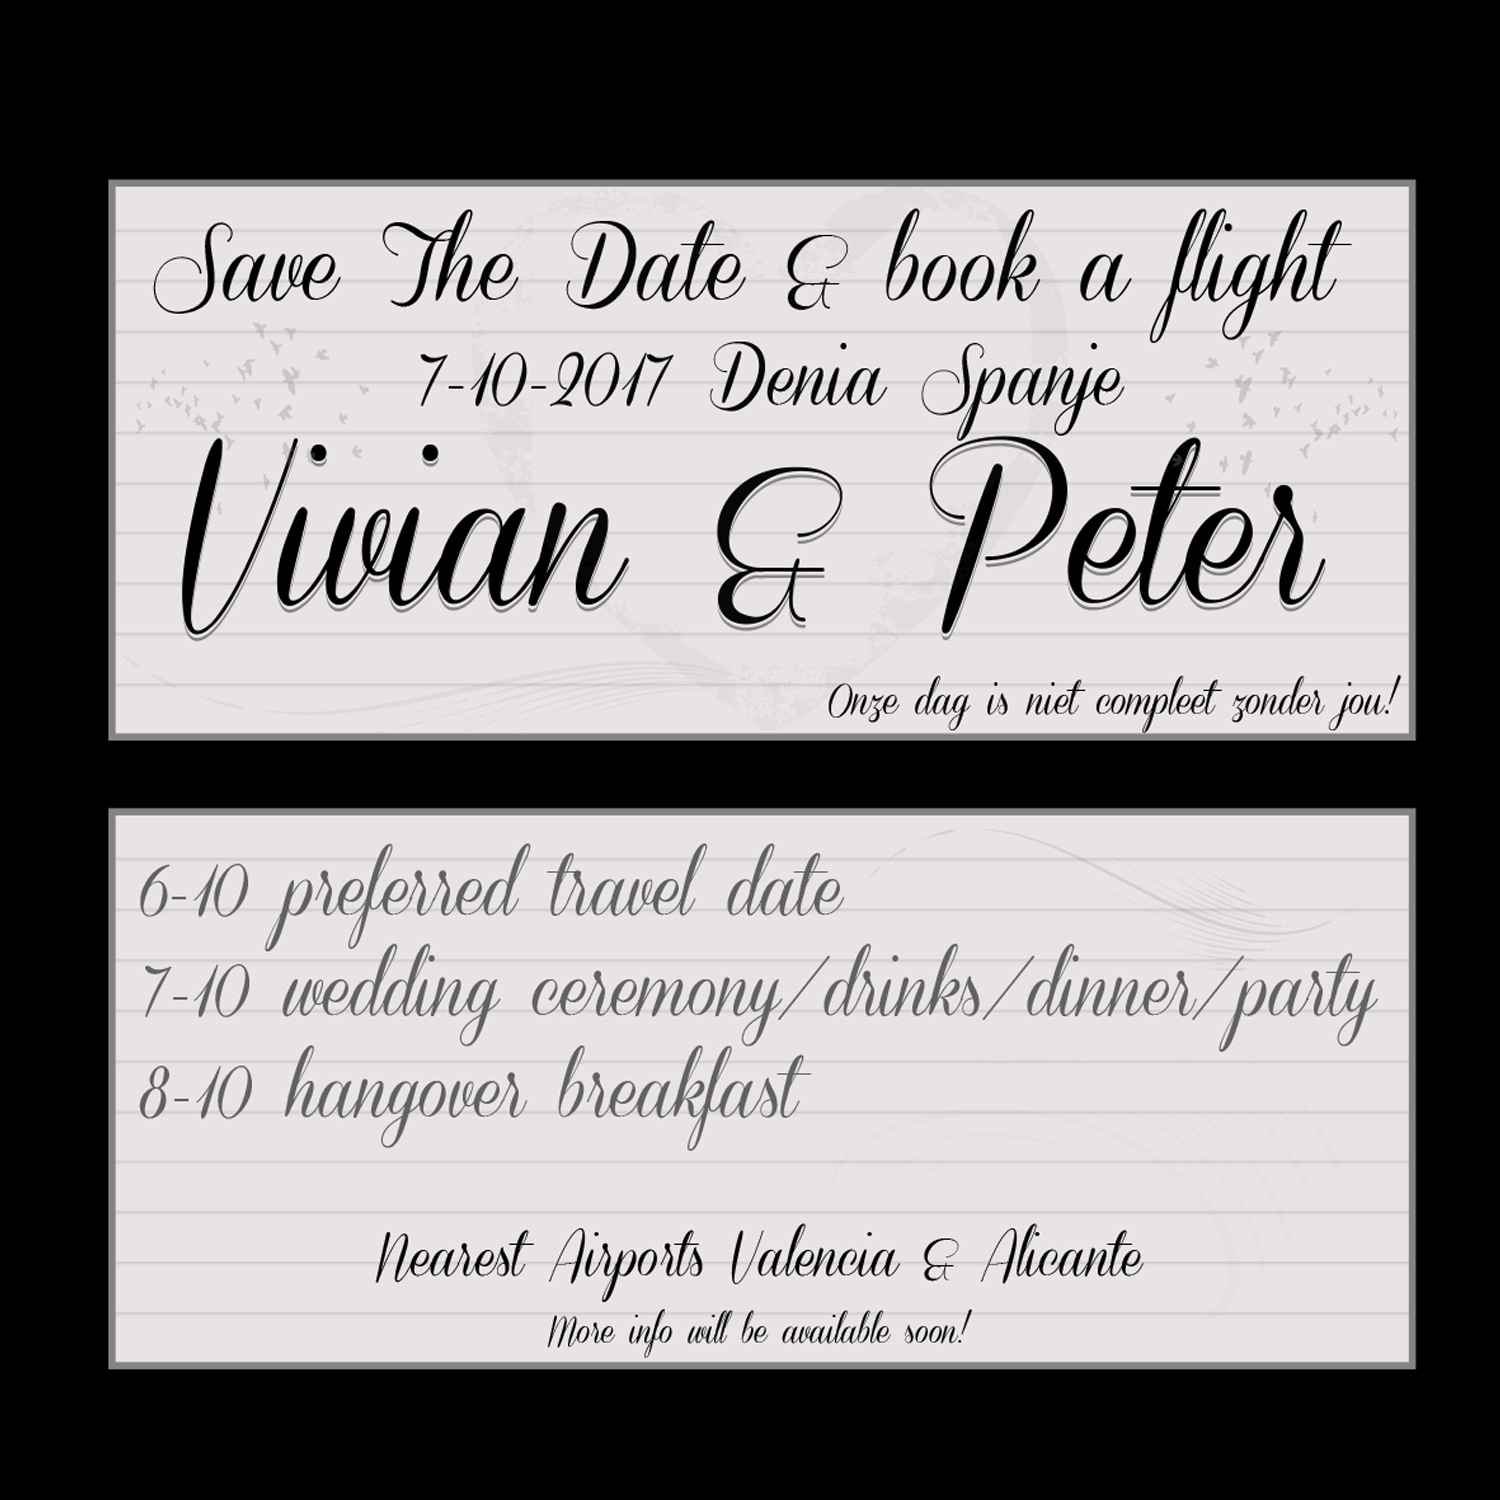 Save The Date & book a flight
7-10-2017 Denia Spanje
Vivian & Peter
Onze dag is niet compleet zonder jou!
6-10 preferred travel date
7-10 wedding ceremony/drinks/dinner/party
8-10 hangover breakfast
Nearest Airports Valencia & Alicante
More info will be available soon!